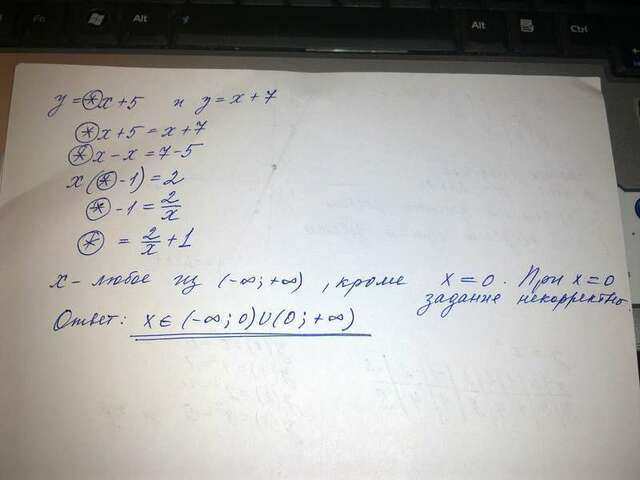 Fn
Alt
Alt
Ctrl
y = ⊛x + 5 и y = x + 7
⊛x + 5 = x + 7
⊛x - x = 7 - 5
x(⊛ - 1) = 2
⊛ - 1 = 2/x
⊛ = 2/x + 1
x - любое из (-∞; +∞), кроме x = 0. При x = 0
задание некорректно.
Ответ: x ∈ (-∞; 0) ∪ (0; +∞)